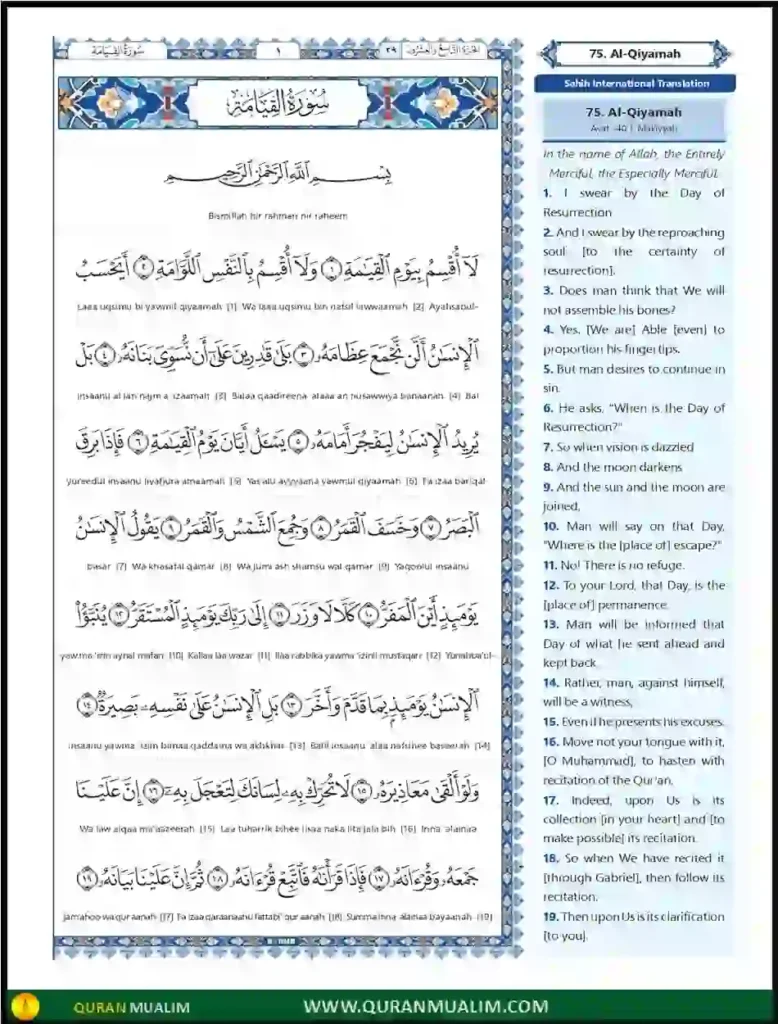 سُورَةُ القِيَامَةِ
١
٢٩
الجُزْءُ التَّاسِعُ وَالعِشْرُونَ
سُورَةُ القِيَامَةِ
بِسْمِ اللَّهِ الرَّحْمَٰنِ الرَّحِيمِ
Bismillah hir rahman nir raheem
لَآ أُقْسِمُ بِيَوْمِ الْقِيَٰمَةِ ١ وَلَآ أُقْسِمُ بِالنَّفْسِ اللَّوَّامَةِ ٢ أَيَحْسَبُ
Laaa uqsimu bi yawmil qiyaamah (1) Wa laaa uqsimu bin nafsil lawwaamah (2) Ayahsabul-
الْإِنسَٰنُ أَلَّن نَّجْمَعَ عِظَامَهُۥ ٣ بَلَىٰ قَٰدِرِينَ عَلَىٰٓ أَن نُّسَوِّىَ بَنَانَهُۥ ٤ بَلْ
insaanu al lan najm'a 'izaamah (3) Balaa qaadireena 'alaaa an nusawwiya banaanah (4) Bal
يُرِيدُ الْإِنسَٰنُ لِيَفْجُرَ أَمَامَهُۥ ٥ يَسْـَٔلُ أَيَّانَ يَوْمُ الْقِيَٰمَةِ ٦ فَإِذَا بَرِقَ
yureedul insaanu liyafjura amaamah (5) Yas'alu ayyyaana yawmul qiyaamah (6) Fa izaa bariqal
الْبَصَرُ ٧ وَخَسَفَ الْقَمَرُ ٨ وَجُمِعَ الشَّمْسُ وَالْقَمَرُ ٩ يَقُولُ الْإِنسَٰنُ
basar (7) Wa khasafal qamar (8) Wa jumi'ash shamsu wal qamar (9) Yaqoolul insaanu
يَوْمَئِذٍ أَيْنَ الْمَفَرُّ ١٠ كَلَّا لَا وَزَرَ ١١ إِلَىٰ رَبِّكَ يَوْمَئِذٍ الْمُسْتَقَرُّ ١٢ يُنَبَّؤُا۟
yaw ma 'izin aynal mafarr (10) Kallaa laa wazar (11) Ilaa rabbika yawma 'izinil mustaqarr (12) Yunabba'ul-
الْإِنسَٰنُ يَوْمَئِذٍۭ بِمَا قَدَّمَ وَأَخَّرَ ١٣ بَلِ الْإِنسَٰنُ عَلَىٰ نَفْسِهِۦ بَصِيرَةٌ ١٤
insaanu yawma 'izim bimaa qaddama wa akhkhar (13) Balil insaanu 'alaa nafsihee baseerah (14)
وَلَوْ أَلْقَىٰ مَعَاذِيرَهُۥ ١٥ لَا تُحَرِّكْ بِهِۦ لِسَانَكَ لِتَعْجَلَ بِهِۦٓ ١٦ إِنَّ عَلَيْنَا
Wa law alqaa ma'aazeerah (15) Laa tuharrik bihee lisaa naka lita'jala bih (16) Inna 'alainaa
جَمْعَهُۥ وَقُرْءَانَهُۥ ١٧ فَإِذَا قَرَأْنَٰهُ فَاتَّبِعْ قُرْءَانَهُۥ ١٨ ثُمَّ إِنَّ عَلَيْنَا بَيَانَهُۥ ١٩
jam'ahoo wa qur aanah (17) Fa izaa qaraanaahu fattabi' qur aanah (18) Summa inna 'alainaa bayaanah (19)
75. Al-Qiyamah
Sahih International Translation
75. Al-Qiyamah
Ayat -40 | Makiyyah
In the name of Allah, the Entirely
Merciful, the Especially Merciful.
1. I swear by the Day of
Resurrection
2. And I swear by the reproaching
soul [to the certainty of
resurrection].
3. Does man think that We will
not assemble his bones?
4. Yes. [We are] Able [even] to
proportion his fingertips.
5. But man desires to continue in
sin.
6. He asks, "When is the Day of
Resurrection?"
7. So when vision is dazzled
8. And the moon darkens
9. And the sun and the moon are
joined,
10. Man will say on that Day,
"Where is the [place of] escape?"
11. No! There is no refuge.
12. To your Lord, that Day, is the
[place of] permanence.
13. Man will be informed that
Day of what he sent ahead and
kept back.
14. Rather, man, against himself,
will be a witness,
15. Even if he presents his excuses.
16. Move not your tongue with it,
[O Muhammad], to hasten with
recitation of the Qur'an.
17. Indeed, upon Us is its
collection [in your heart] and [to
make possible] its recitation.
18. So when We have recited it
[through Gabriel], then follow its
recitation.
19. Then upon Us is its clarification
[to you].
QURAN MUALIM
WWW.QURANMUALIM.COM